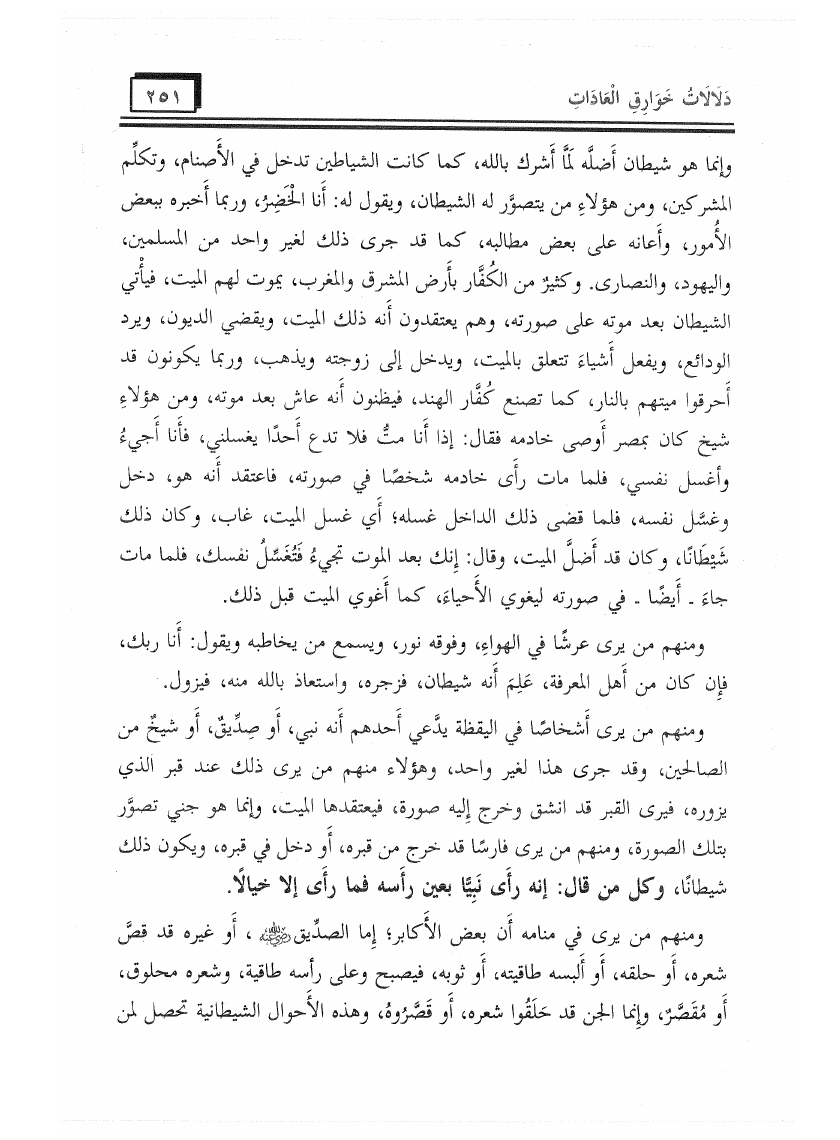 دَلَالَاتُ خَوَارِقِ الْعَادَاتِ
٢٥١
وإنما هو شيطان أَضلَّه لمَّا أَشرك بالله، كما كانت الشياطين تدخل في الأَصنام، وتكلِّم
المشركين، ومن هؤلاءِ من يتصوَّر له الشيطان، ويقول له: أَنا الْخَضِرُ، وربما أَخبره ببعض
الأُمور، وأَعانه على بعض مطالبه، كما قد جرى ذلك لغير واحد من المسلمين،
واليهود، والنصارى. وكثيرٌ من الكُفَّار بأَرض المشرق والمغرب، يموت لهم الميت، فيأْتي
الشيطان بعد موته على صورته، وهم يعتقدون أَنه ذلك الميت، ويقضي الديون، ويرد
الودائع، ويفعل أَشياءَ تتعلق بالميت، ويدخل إِلى زوجته ويذهب، وربما يكونون قد
أَحرقوا ميتهم بالنار، كما تصنع كُفَّار الهند، فيظنون أَنه عاش بعد موته، ومن هؤلاءِ
شيخ كان بمصر أَوصى خادمه فقال: إِذا أَنا متُّ فلا تدع أَحدًا يغسلني، فأَنا أَجيءُ
وأغسل نفسي، فلما مات رأَى خادمه شخصًا في صورته، فاعتقد أَنه هو، دخل
وغسَّل نفسه، فلما قضى ذلك الداخل غسله؛ أَي غسل الميت، غاب، وكان ذلك
شَيْطَانًا، وكان قد أَضلَّ الميت، وقال: إِنك بعد الموت تجيءُ فَتُغَسِّلُ نفسك، فلما مات
جاءَ ـ أَيضًا ـ في صورته ليغوي الأَحياءَ، كما أَغوي الميت قبل ذلك.
ومنهم من يرى عرشًا في الهواءِ، وفوقه نور، ويسمع من يخاطبه ويقول: أَنا ربك،
فإِن كان من أَهل المعرفة، عَلِمَ أَنه شيطان، فزجره، واستعاذ بالله منه، فيزول.
ومنهم من يرى أَشخاصًا في اليقظة يدَّعي أَحدهم أَنه نبي، أَو صِدِّيقٌ، أَو شيخٌ من
الصالحين، وقد جرى هذا لغير واحد، وهؤلاء منهم من يرى ذلك عند قبر الذي
يزوره، فيرى القبر قد انشق وخرج إِليه صورة، فيعتقدها الميت، وإنما هو جني تصوَّر
بتلك الصورة، ومنهم من يرى فارسًا قد خرج من قبره، أَو دخل في قبره، ويكون ذلك
شيطانًا، وكل من قال: إنه رأَى نَبِيًّا بعين رأسه فما رأى إلا خيالًا.
ومنهم من يرى في منامه أَن بعض الأَكابر؛ إِما الصدِّيق رضي الله عنه، أَو غيره قد قصَّ
شعره، أَو حلقه، أَو أَلبسه طاقيته، أَو ثوبه، فيصبح وعلى رأسه طاقية، وشعره محلوق،
أَو مُقَصَّرٌ، وإنما الجن قد حَلَقُوا شعره، أَو قَصَّرُوهُ، وهذه الأَحوال الشيطانية تحصل لمن